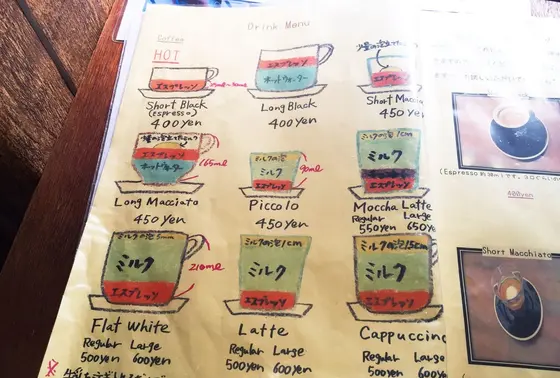 Drink Menu
Coffee
HOT
エスプレッソ
Short Black
(Espresso)
400yen
エスプレッソ
ホットウォーター
Long Black
400yen
エスプレッソ
Short Macc
450yen
エスプレッソ
ホットウォーター
165ml
Long Macciato
450yen
ミルクの泡
ミルク
エスプレッソ
90ml
Piccolo
450yen
ミルクの泡1cm
ミルク
エスプレッソ
Moccha Latte
Regular Large
550yen 650y
ミルクの泡5mm
ミルク
エスプレッソ
210ml
Flat White
Regular Large
500yen 600yen
ミルクの泡1cm
ミルク
エスプレッソ
Latte
Regular Large
500yen 600yen
ミルクの泡1.5cm
ミルク
エスプレッソ
Cappuccino
Regular Large
500yen 600yen
400yen
Short Macchiato